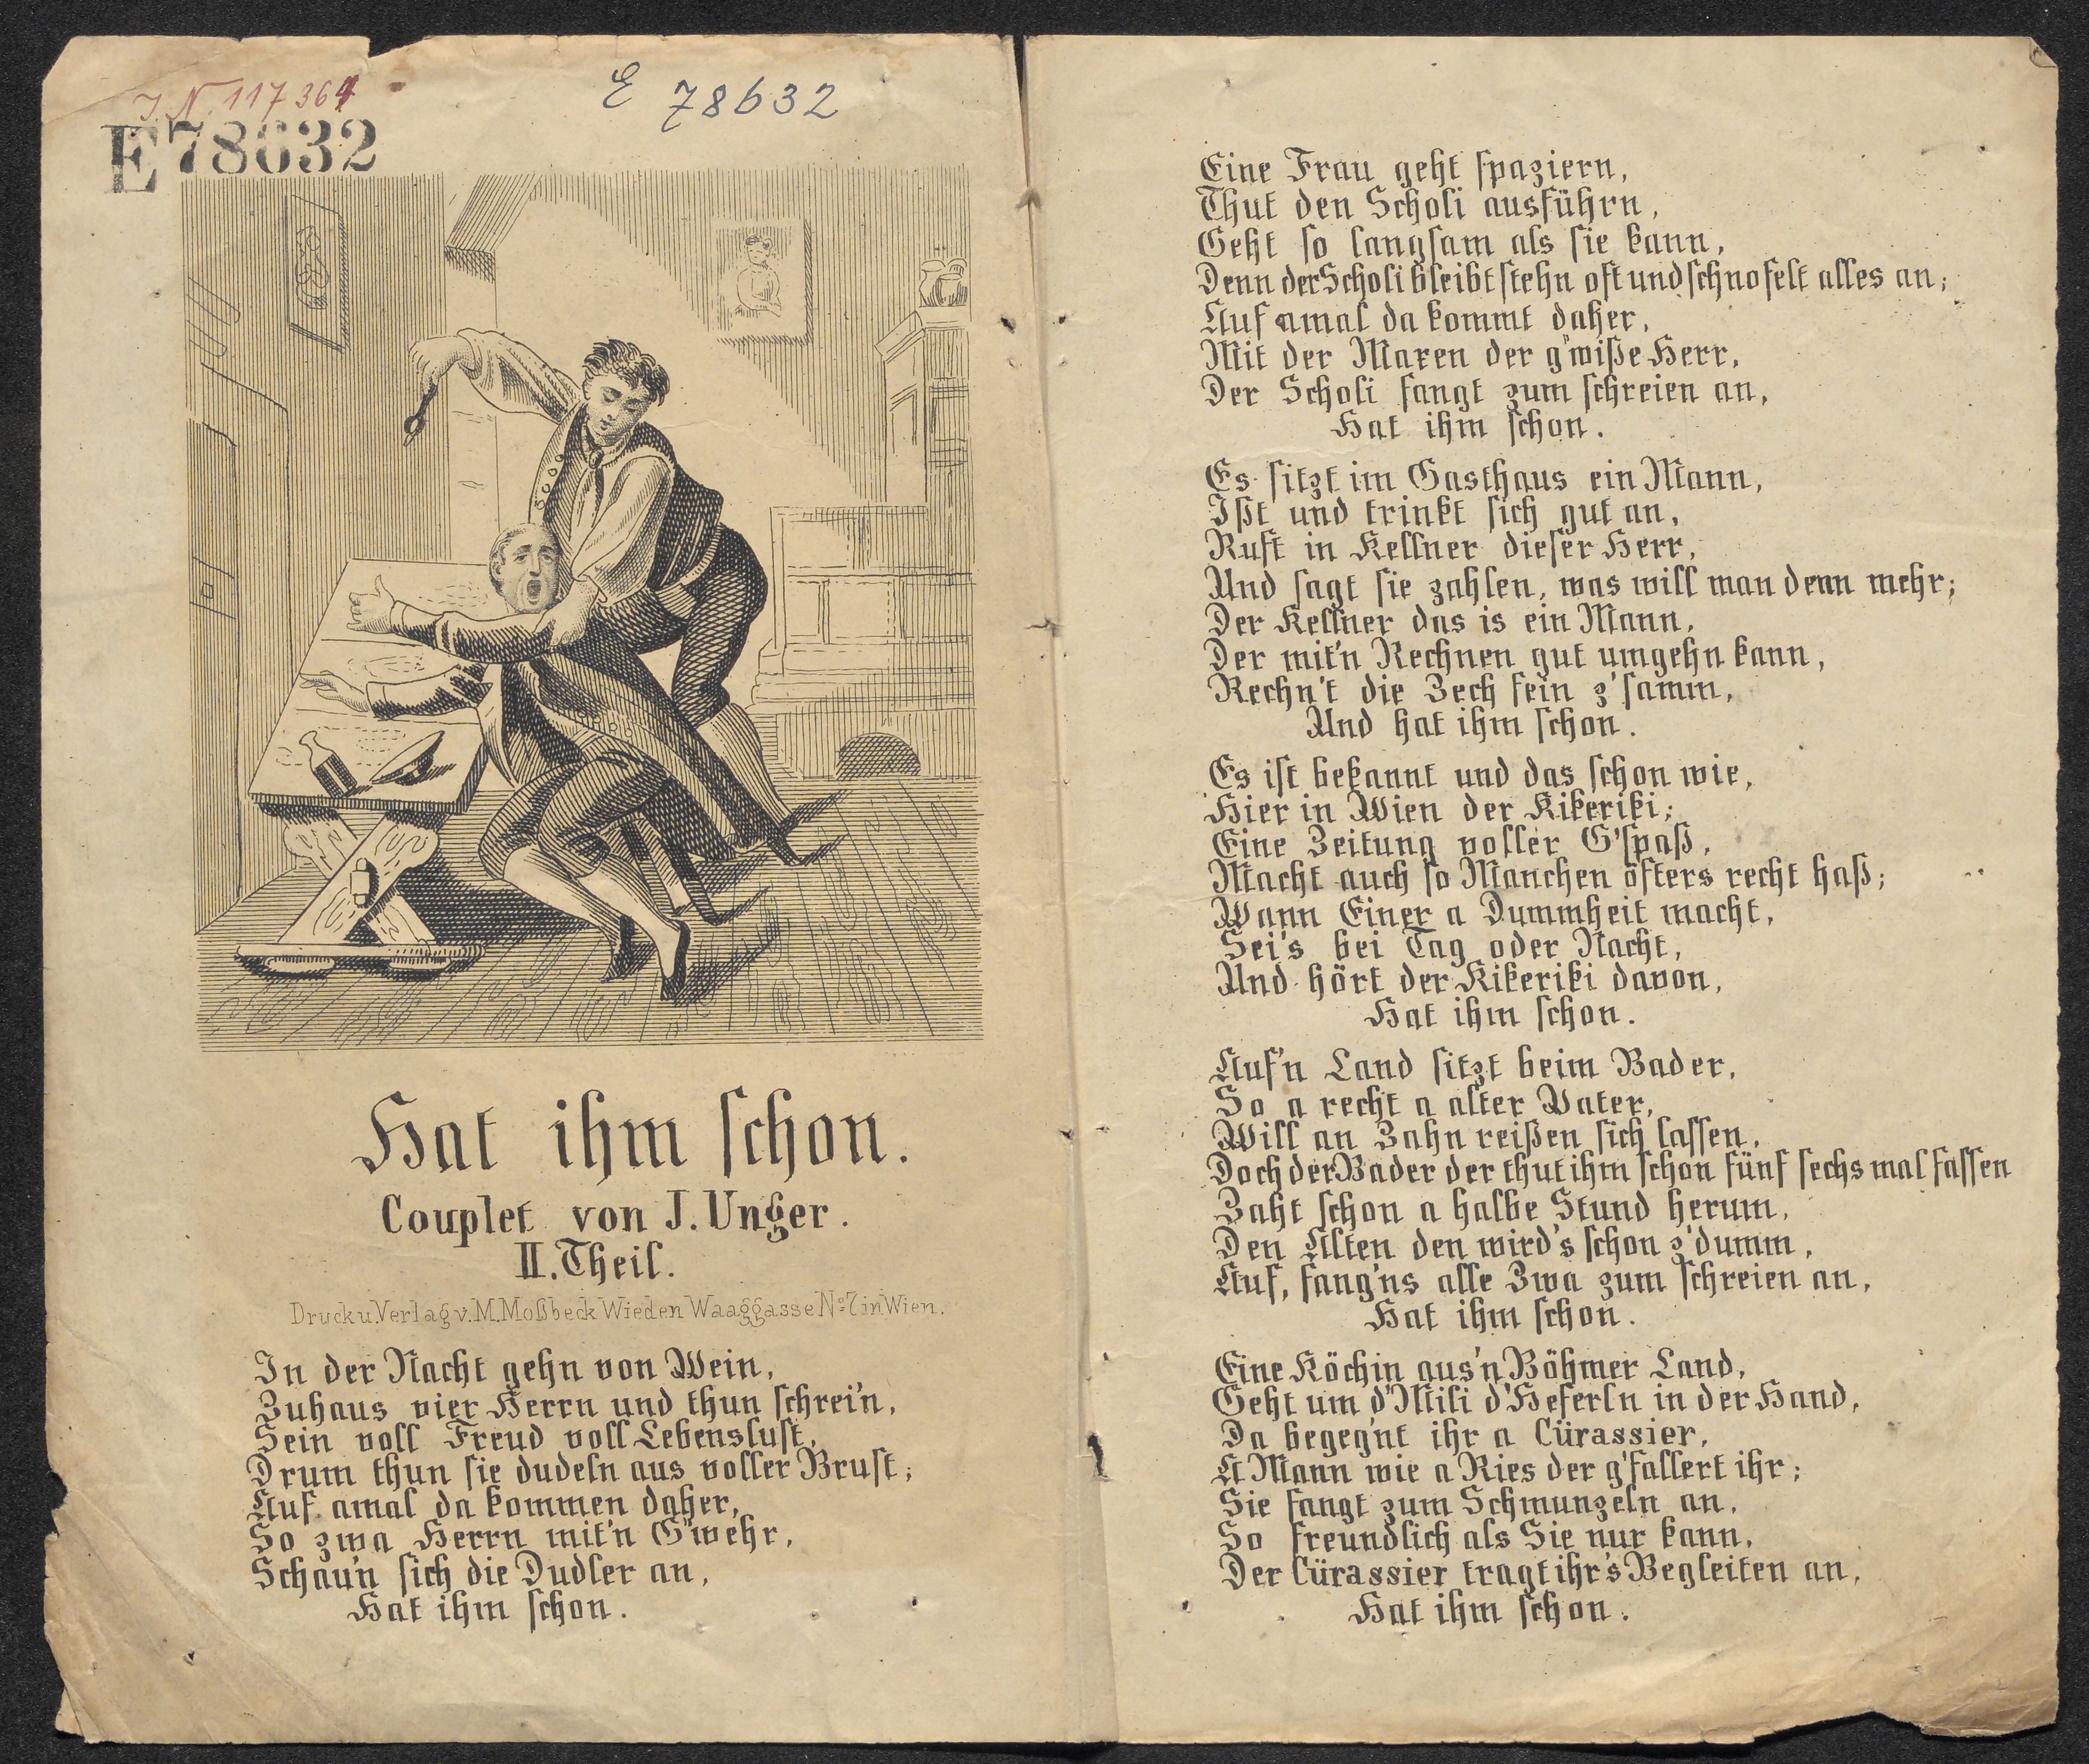 J. N. 117364
E 78632
E 78632
Hat ihm ſchon.
Couplet von J. Unger.
II. Theil.
Druck u. Verlag v. M. Moßbeck Wieden Waaggasse No 7 in Wien.
In der Nacht gehn von Wein,
Zuhaus vier Herrn und thun ſchrei'n,
Sein voll Freud voll Lebensluſt,
Drum thun ſie dudeln aus voller Bruſt;
Auf amal da kommen daher,
So zwa Herrn mit'n G'wehr,
Schau'n ſich die Dudler an,
Hat ihm ſchon.
Eine Frau geht ſpaziern,
Thut den Scholi ausführn,
Geht ſo langſam als ſie kann,
Denn der Scholi bleibt ſtehn oft und ſchnofelt alles an;
Auf amal da kommt daher,
Mit der Maxen der g'wiße Herr,
Der Scholi fangt zum ſchreien an,
Hat ihm ſchon.
Es ſitzt im Gasthaus ein Mann,
Ißt und trinkt ſich gut an,
Ruft in Kellner dieſer Herr,
Und ſagt ſie zahlen, was will man denn mehr;
Der Kellner das is ein Mann,
Der mit'n Rechnen gut umgehn kann,
Rechn't die Zech fein z'ſamm,
Und hat ihm ſchon.
Es iſt bekannt und das ſchon wie,
Hier in Wien der Kikeriki;
Eine Zeitung voller G'ſpaß,
Macht auch ſo Manchen öfters recht haß;
Wann Einer a Dummheit macht,
Sei's bei Tag oder Nacht,
Und hört der Kikeriki davon,
Hat ihm ſchon.
Auf'n Land ſitzt beim Bader,
So a recht a alter Vater,
Will an Zahn reißen ſich laſſen,
Doch der Bader der thut ihm ſchon fünf ſechs mal faſſen
Zaht ſchon a halbe Stund herum,
Den Alten den wird's ſchon z'dumm,
Auf, fang'ns alle Zwa zum ſchreien an,
Hat ihm ſchon.
Eine Köchin aus'n Böhmer Land,
Geht um d'Mili d'Heferln in der Hand,
Da begeg'nt ihr a Cürassier,
A Mann wie a Ries der g'fallert ihr;
Sie fangt zum Schmunzeln an,
So freundlich als Sie nur kann,
Der Cürassier tragt ihr's Begleiten an,
Hat ihm ſchon.